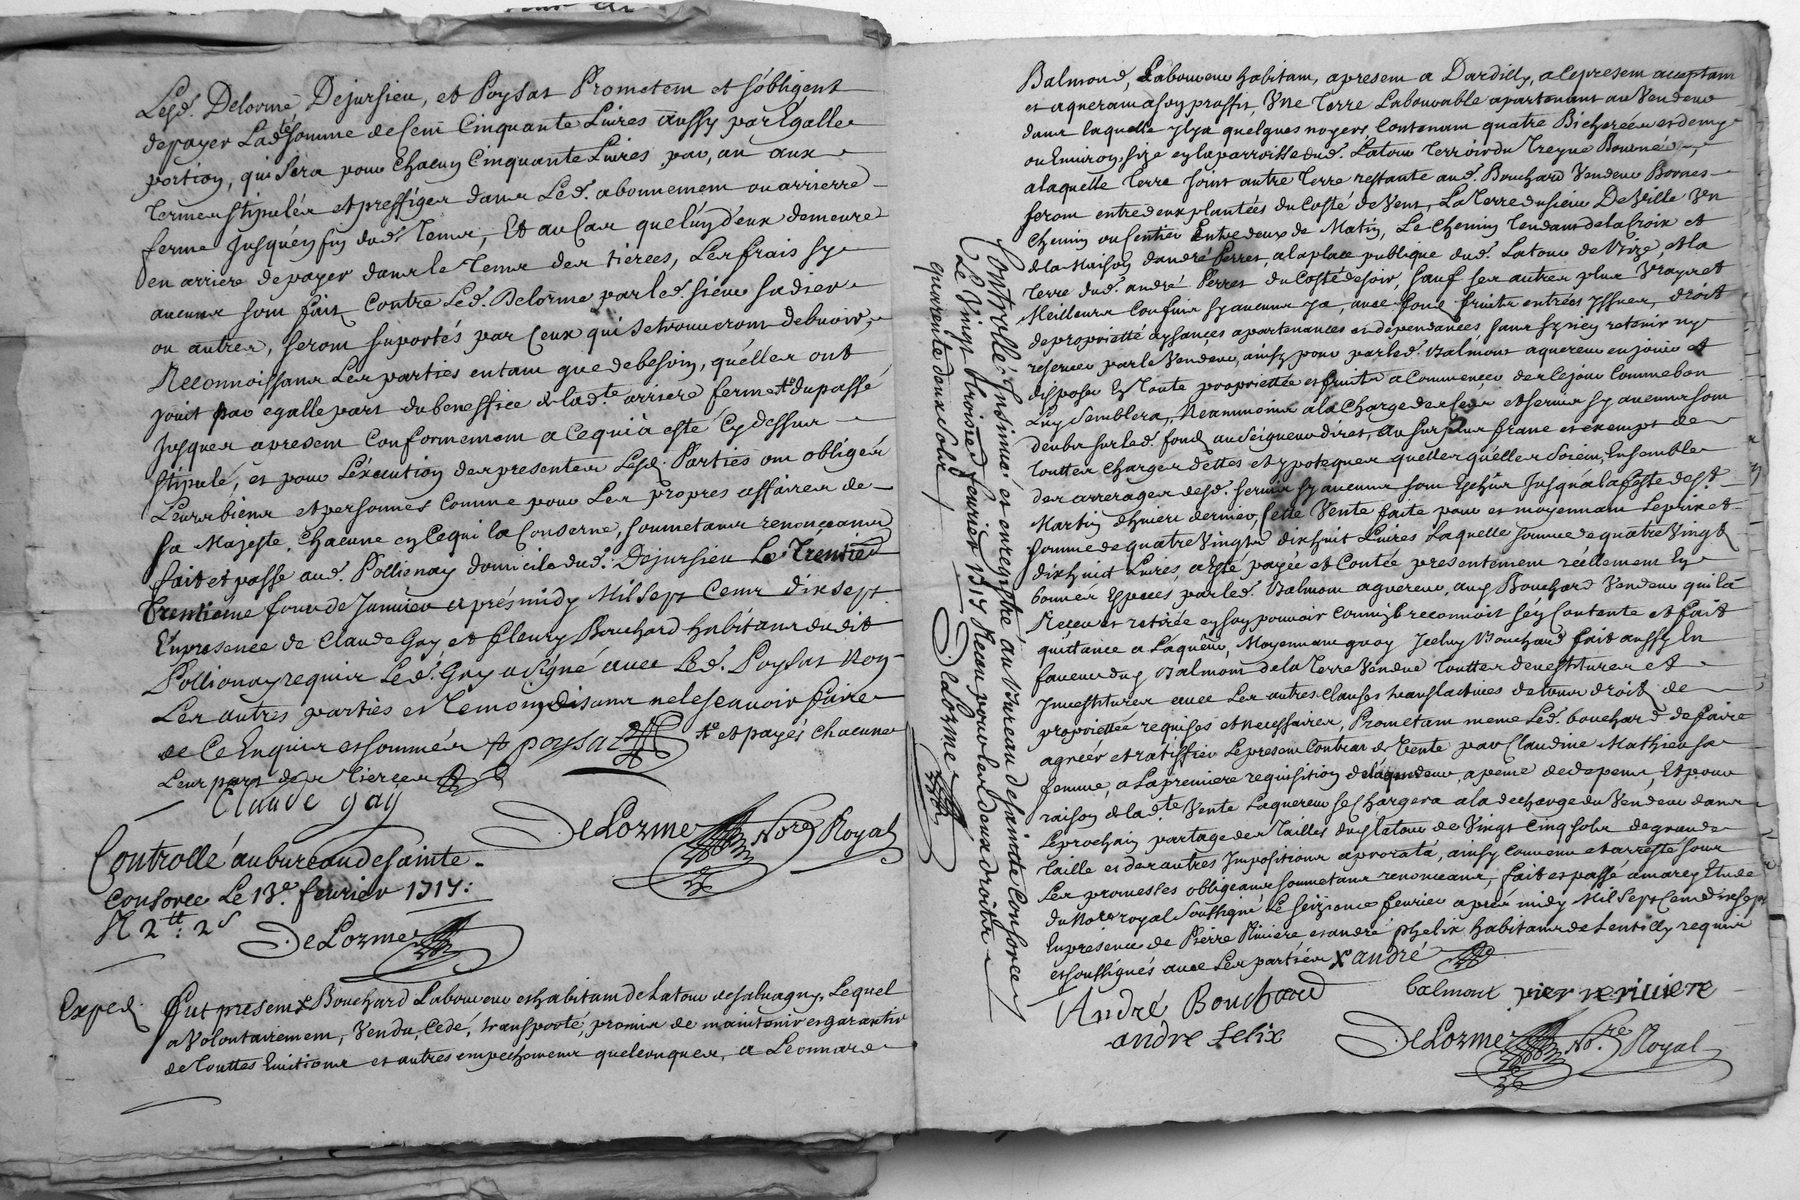 Lesd. Delorme Dejursieu, et Poysat Prometem et sobligent
depayer Lade. somme decent Cinquante Livres aussy par Egalle
portion, qui sera pour chacun Cinquante Livres, par, an aux
Termes stipulés et preffiges dans Led. abonnement ou arrierre
ferme Jusquén fin dud. Tems, Et aucas que luy deux demeure
en arriere depayer dans le Tems des tierces, Les frais sy
aucuns sont fait Contre Led. Delorme par led. sieur
ou autres, seront suportés par Ceux qui setrouveront debuoir,
Reconnoissans Les parties entant que debesoin, quélles ont
jouit par egalle part du beneffice de lade. arriere ferme dupassé
Jusques apresent Conformement a Cequi a esté Cydessus
stipulé, et pour Léxécution des presentes Lesd. Parties ont obligés
Leurs biens et personnes Comme pour Les propres affaires de
sa Majeste, chacune en Cequi la Conserne, soumetans renonceans
fait et passé aud. Pollienay domicile dud. Dejursieu Le Trentie
Trentieme Jour de Janvier aprésmidy Mil sept Cens dix sept
Enpresence de Claude Gay, et fleury Bouchard habitans dudit
Pollionay requis Led. Gay a signé avec Led. Poysat Non
Les autres parties et Temoin disans nele scavoir faire
de Ce Enquis et sommés poysat
te et payés chacune
Leur part des Tierces
Claude gay
DeLorme No.re Royal
Controllé au bureau de sainte
Consorce Le 13.e fevrier 1717:
R 2 tt: 2 s
DeLorme
Exped.
fut present Bouchard Laboureur et habitant de Latour desalvagny, Lequel
a Volontairement, Vendu, Cedé, transporté, promis de maintenir et garantir
de Touttes Evitions et autres empechemens quelconques, a Léonnard
Balmond, Laboureur habitant, apresent a Dardilly, a Cepresent acceptant
et aquerant asoy proffit, Une Terre Labourable apartenant au Vendeur
dans laquelle Ilya quelques noyers, Contenant quatre Bicherées et demy
ou Environ, size en la parroisse dud. Latour Terroir du Treyne Bourne
alaquelle Terre joint autre Terre restante aud. Bouchard Vendeur Bornes
seront entredeux plantées du Costé de Vent, La Terre du sieur DeVille Un
Chemin ou sentier Entre deux de Matin, Le Chemin Tendant de la Croix et
de la Maison dandré Perret, ala place publique dud. Latour de Bize, et la
Terre dud. andré Perret du Costé de soir, sauf ses autres plus Vrays et
Meilleurs Confins sy aucuns ya, avec fond fruits entrées yssues, droit
de proprietté aysances apartenances et dépendances sans sy rien retenir ny
reserver par le Vendeur, ainsy pour par led. Balmont aquereur en jouir et
disposer En toute proprietée et fruits a Commencer de Cejour Comme bon
Luy semblera, Neanmoins ala Charge des Cens et servis sy aucuns sont
deubs sur led. fond au seigneur direct, au surplus franc et exempt de
touttes Charges dettes et ypoteques quelles quelles soient, Ensemble
des arrerages desd. servis sy aucuns sont Echus Jusquá la feste de St.
Martin dhiver dernier, Cette Vente faite pour et moyennant Le prix et
somme de quatre Vingts dix huit Livres Laquelle somme de quatre Vingt
dixhuit Livres, a esté payée et Contée présentement réellement En
bonnes Especes par led. Balmont aquereur, aud. Bouchard Vendeur qui la
Receu et retirée en son pouvoir Comme reconnoit s'en Contente et fait
quittance a Laquereur, Moyennant quoy Jceluy Bouchard fait aussy En
faveur dud. Balmont de la Terre Vendue touttes devestitures et
Jnvestitures avec Les autres Clauses translatives de tous droit de
proprietée requises et necessaires, Prometant meme Led. bouchard defaire
agréer et ratiffier Lepresent Contrat de Vente par Claudine Mathieu sa
femme, a La premiere requisition de laquereur, apeine de depens, Et pour
raison de la de. Vente Laquereur se Chargera a la decharge du Vendeur dans
Leprochain partage des Tailles dud. Latour de Vingt Cinq sols de grande
Taille et des autres Impositions aprorata, ainsy Convenu et arresté sous
Les promesses obligeans soumetans renonceans, fait et passé amarcy Etude
du No.re royal soussigné Le seizieme fevrier apres midy Mil sept Cens dix sept
Enpresence de Pierre Riviere et andré phelix habitans de Lentilly requis
et soussignés avec Les parties X andré
André Bouchard
balmont pier reriviere
andre felix
DeLorme No.re Royal
Controllé, Insinué et enregistré au Bureau de Sainte Consorce
Le Vingt troisie fevrier 1717 Receu pour les deux droits
quarente deux sols
DeLorme